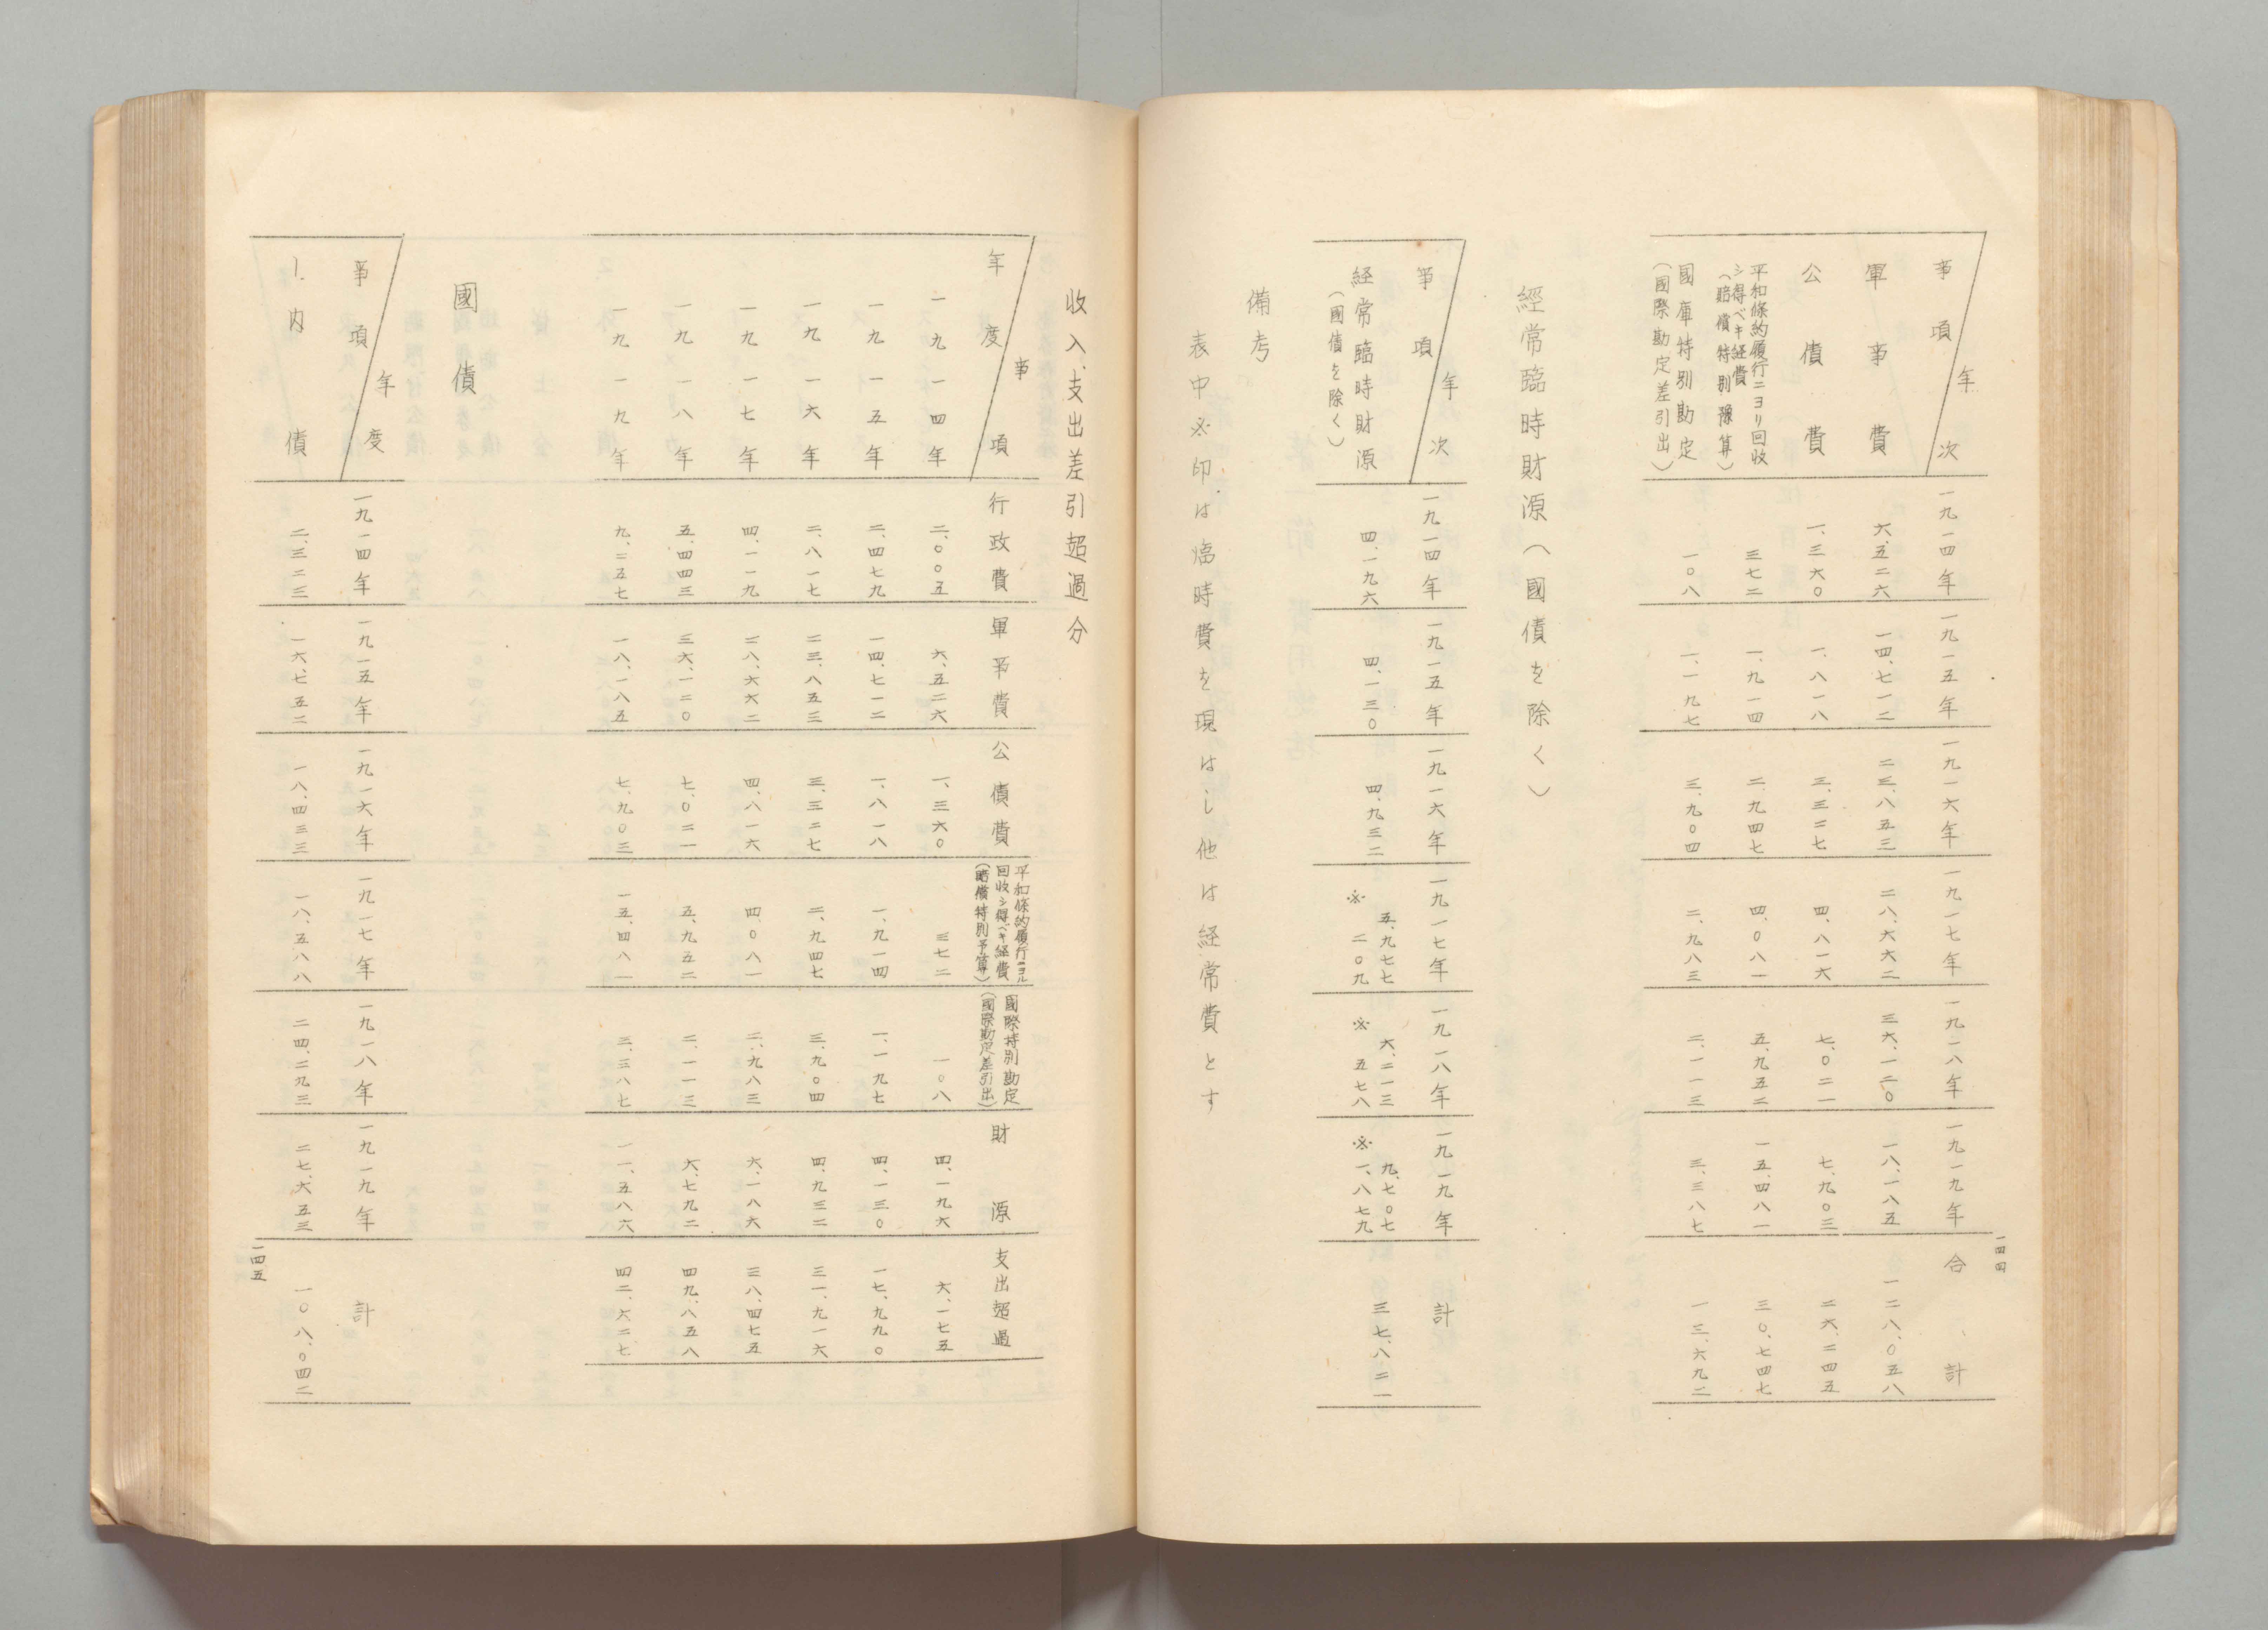 一四四
事項 年次
一九一四年
一九一五年
一九一六年
一九一七年
一九一八年
一九一九年
合計
軍事費
六、五二六
一四、七一二
二三、八五三
二八、六六二
三六、一二〇
一八、一八五
一二八、〇五八
公債費
一、三六〇
一、八一八
三、三二七
四、八一六
七、〇二一
七、九〇三
二六、二四五
平和條約履行ニヨリ回收
シ得ベキ経費
(賠償特別豫算)
三七二
一、九一四
二、九四七
四、〇八一
五、九五二
一五、四八一
三〇、七四七
國庫特別勘定
(國際勘定差引出)
一〇八
一、一九七
三、九〇四
二、九八三
二、一一三
三、三八七
一三、六九二
經常臨時財源(國債を除く)
事項 年次
一九一四年
一九一五年
一九一六年
一九一七年
一九一八年
一九一九年
計
経常臨時財源
(國債を除く)
四、一九六
四、一三〇
四、九三二
五、九七七
※ 二〇九
六、二一三
※ 五七八
九、七〇七
※ 一、八七九
三七、八二一
備考
表中※印は臨時費を現はし他は経常費とす
收入、支出差引超過分
年度 事項
行政費
軍事費
公債費
平和條約履行ニヨル
回收シ得ベキ経費
(賠償特別予算)
國際特別勘定
(國際勘定差引出)
財源
支出超過
一九一四年
二、〇〇五
六、五二六
一、三六〇
三七二
一〇八
四、一九六
六、一七五
一九一五年
二、四七九
一四、七一二
一、八一八
一、九一四
一、一九七
四、一三〇
一七、九九〇
一九一六年
二、八一七
二三、八五三
三、三二七
二、九四七
三、九〇四
四、九三二
三一、九一六
一九一七年
四、一一九
二八、六六二
四、八一六
四、〇八一
二、九八三
六、一八六
三八、四七五
一九一八年
五、四四三
三六、一二〇
七、〇二一
五、九五二
二、一一三
六、七九二
四九、八五八
一九一九年
九、二五七
一八、一八五
七、九〇三
一五、四八一
三、三八七
一一、五八六
四二、六二七
國債
事項 年度
一九一四年
一九一五年
一九一六年
一九一七年
一九一八年
一九一九年
計
1.内債
二、三二三
一六、七五二
一八、四三三
一八、五八八
二四、二九三
二七、六五三
一〇八、〇四二
一四五